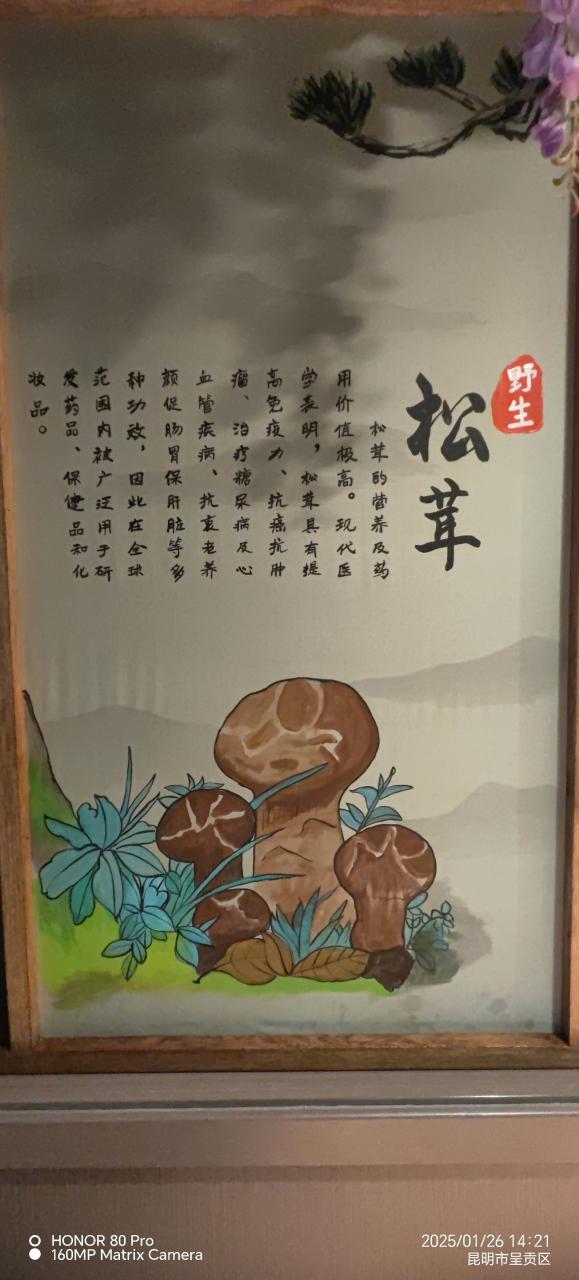 野生
松茸
松茸的营养及药
用价值极高。现代医
学表明，松茸具有提
高免疫力、抗癌抗肿
瘤、治疗糖尿病及心
血管疾病、抗衰老养
颜促肠胃保肝脏等多
种功效，因此在全球
范围内被广泛用于研
发药品、保健品和化
妆品。
HONOR 80 Pro
160MP Matrix Camera
2025/01/26 14:21
昆明市呈贡区